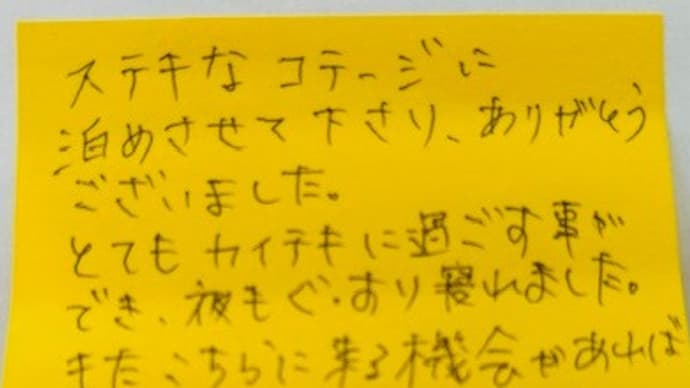 ステキな コテージに
泊めさせて下さり、ありがとう
ございました。
とてもカイテキに過ごす事が
でき、夜もぐっすり寝れました。
またこちらに来る機会があれば